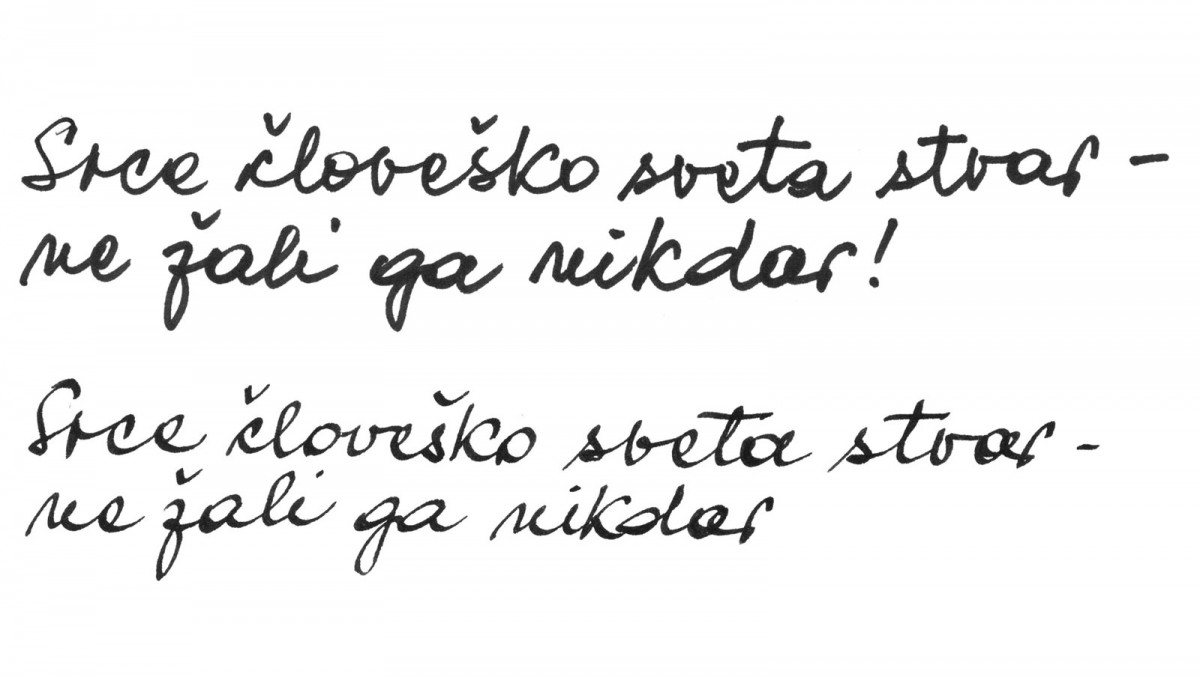 Srce človeško sveta stvar –
ne žali ga nikdar!
Srce človeško sveta stvar –
ne žali ga nikdar